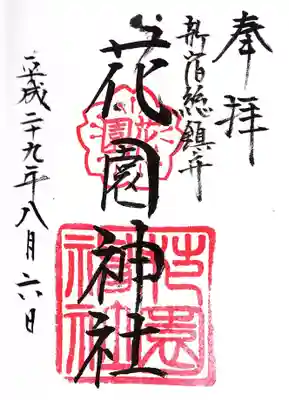 奉拝
新宿総鎮守
花園神社
平成二十九年八月六日
花園
花園神社